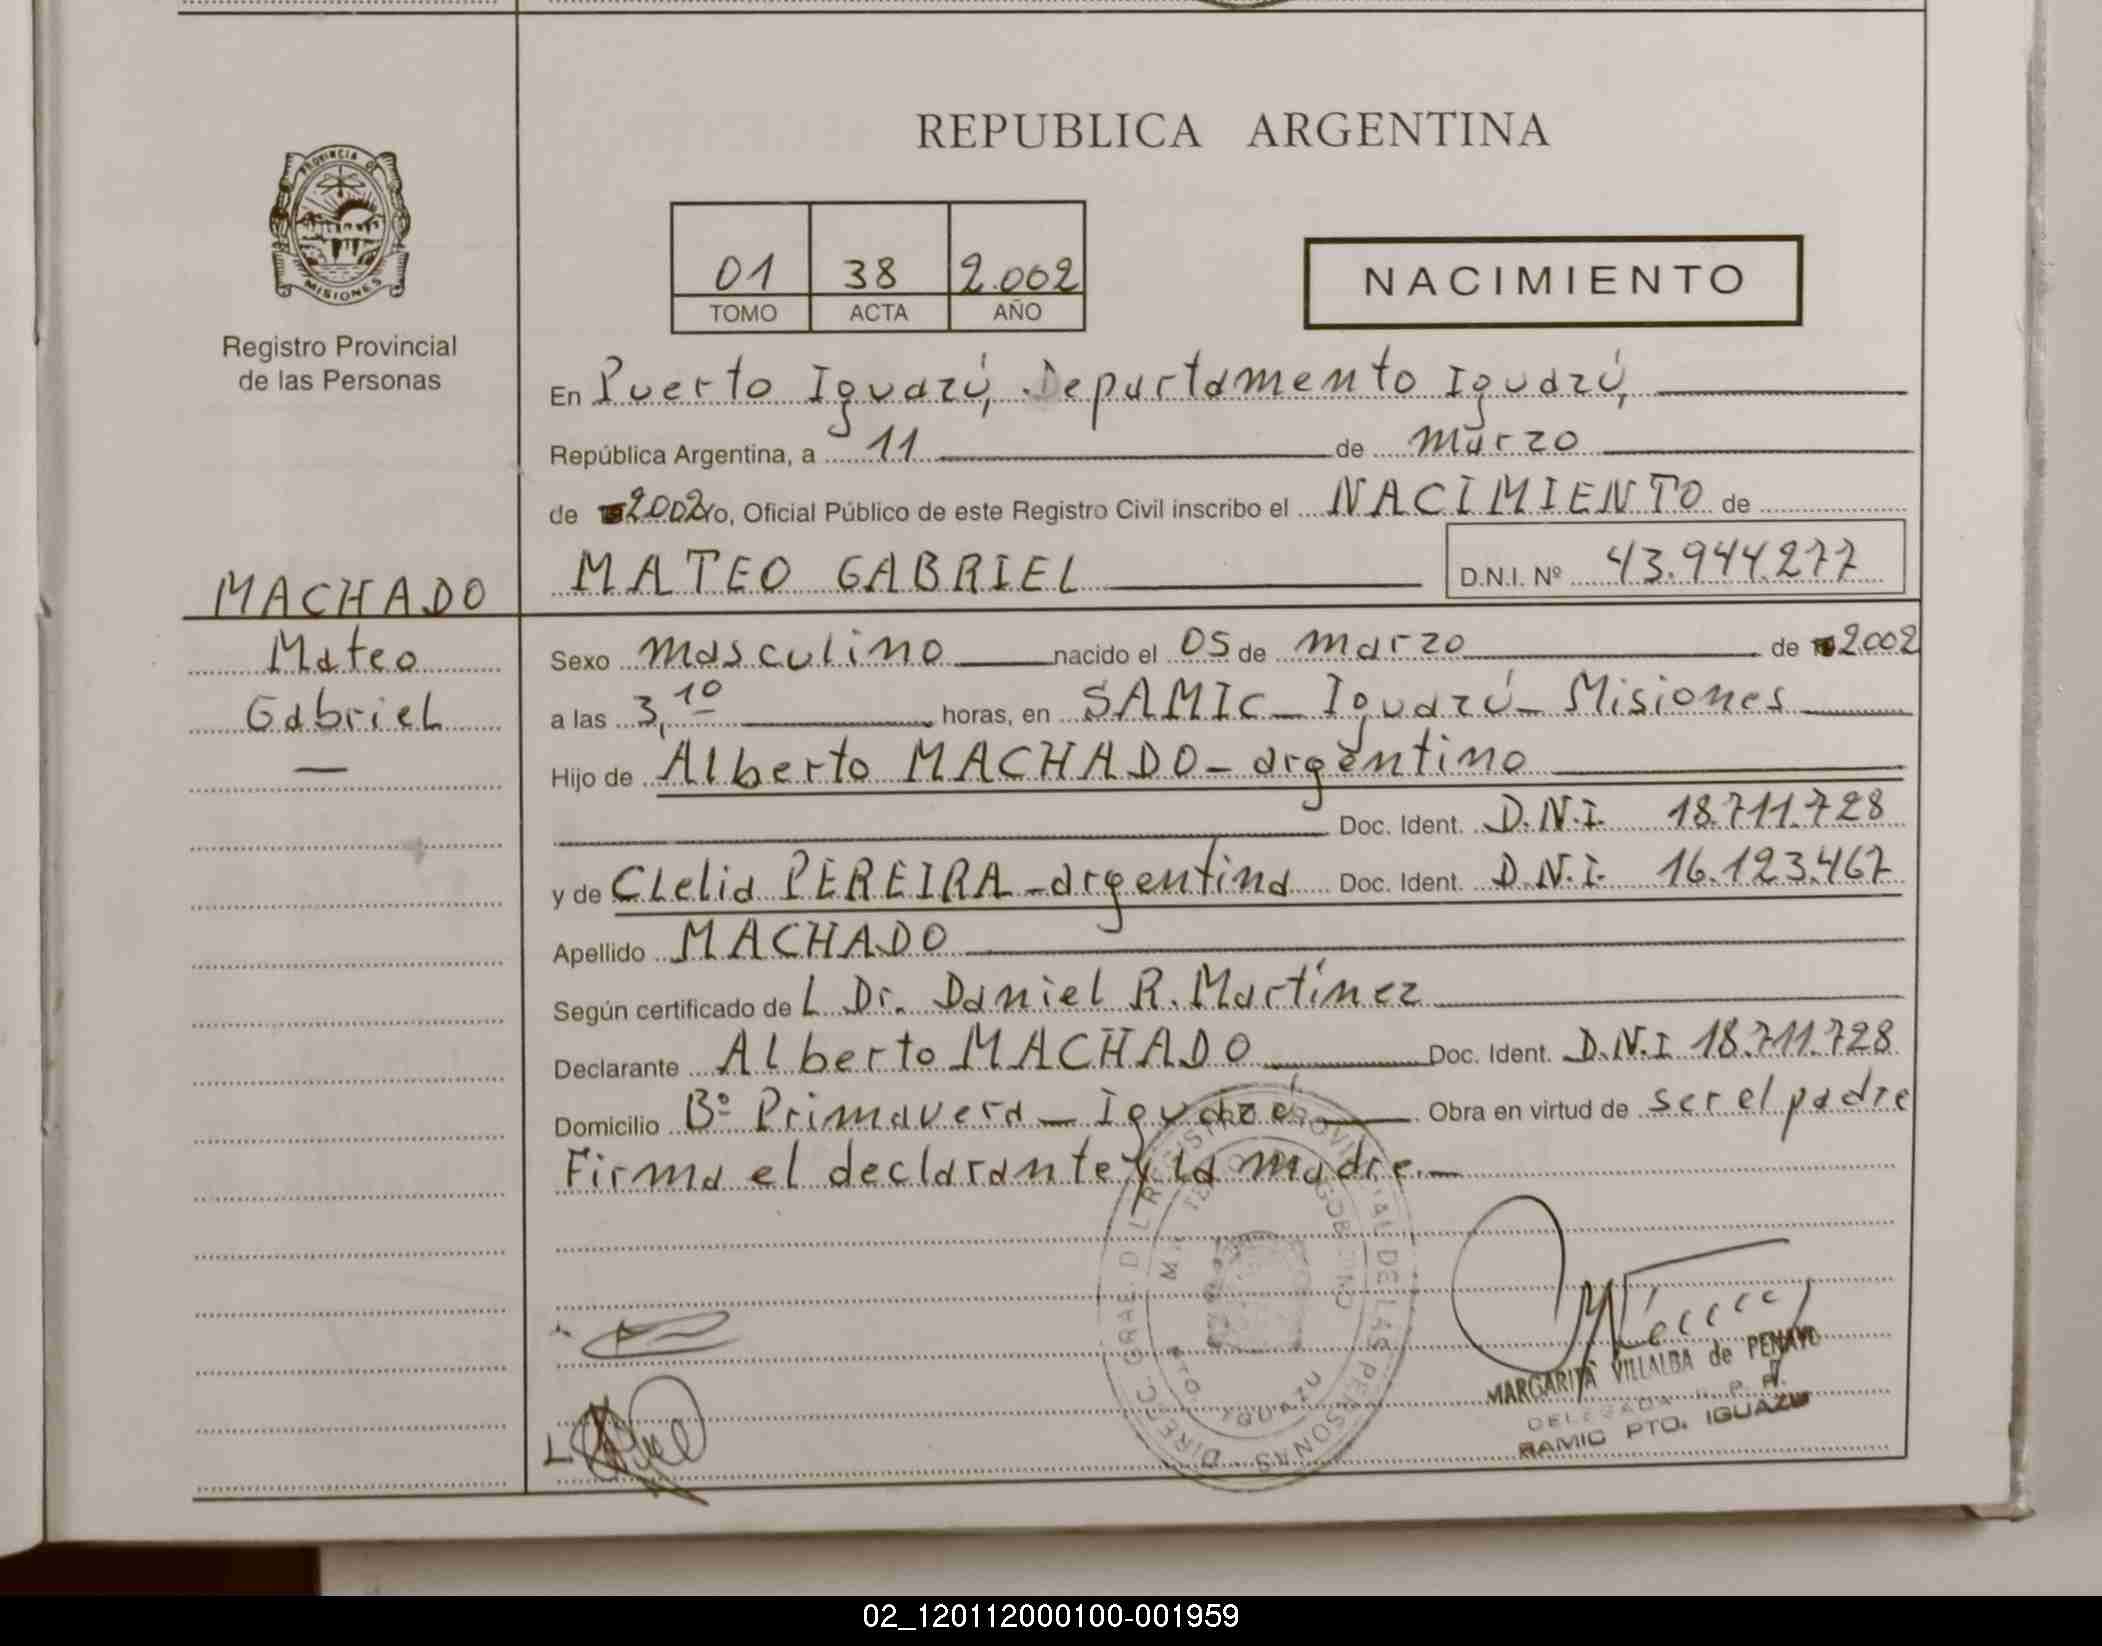 REPUBLICA ARGENTINA
PROVINCIA DE MISIONES
Registro Provincial
de las Personas
01 38 2.002
TOMO ACTA AÑO
NACIMIENTO
En Puerto Iguazú, Departamento Iguazú,
República Argentina, a 11 de marzo
de 2002 yo, Oficial Público de este Registro Civil inscribo el NACIMIENTO de
MATEO GABRIEL D.N.I. Nº 43.944.277
MACHADO
Mateo
Gabriel
Sexo masculino nacido el 05 de marzo de 2002
a las 3,10 horas, en SAMIC - Iguazú - Misiones
Hijo de Alberto MACHADO - argentino
Doc. Ident. D.N.I. 18.711.728
y de Clelia PEREIRA - argentina Doc. Ident. D.N.I. 16.123.467
Apellido MACHADO
Según certificado de L Dr. Daniel R. Martínez
Declarante Alberto MACHADO Doc. Ident. D.N.I 18.711.728
Domicilio Bº Primavera - Iguazú Obra en virtud de ser el padre
Firma el declarante y la madre.-
DIREC. GRAL. DEL REGISTRO PROVINCIAL DE LAS PERSONAS
PTO. IGUAZU
MARGARITA VILLALBA de PENAYO
DELEGADA R. P. P.
SAMIC PTO. IGUAZU
02_120112000100-001959